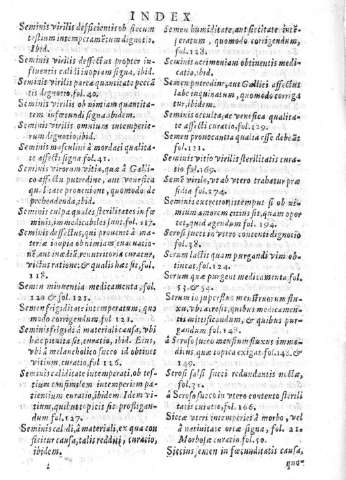 INDEX
Seminis virilis defficienti ob siccum
testium intemperamẽtum dignotio,
ibid.
Seminis virilis deffectus propter in
fluentis calidi inopiam signa, ibid.
Seminis virilis parca quantitate peccã
tis dignotio fol. 40.
Seminis virilis ob nimiam quantita-
tem infœcundi signa, ibidem.
Seminis virilis omnium intemperie-
rum dignotio, ibid.
Seminis masculini à mordaci qualita-
te affecti signa fol. 41.
Seminis virorum vitia, quæ à Galli-
co affectu putredine, aut venefica
qualitate proueniunt, quomodo de
prehendenda, ibid.
Seminis culpa quales sterilitates in fœ
minis, immedicabiles sint fol. 117.
Seminis deffectus, qui prouenit à ma-
teriæ inopia ob nimiam euacuatio-
nẽ, aut inediã, restitutoria curatur,
victus ratione: & qualis hæc sit, fol.
118.
Semen minuentia medicamenta, fol.
120 & fol. 121.
Semen frigiditate intemperatum, quo
modo corrigendum fol. 121.
Seminis frigidi à materiali causa, vbi
hæc pituita sit, curatio, ibid. Eius,
vbi à melancholico succo id obtinet
vitium, curatio, fol. 126.
Seminis caliditate intemperati, ob tes-
tium consimilem intemperiem pa-
tientium curatio, ibidem. Idem vi-
tium, quibus topicis sit profligan-
dum fol. 127.
Seminis calidi, à materiali, ex qua con
ficitur causa, talis redditi, curatio,
ibidem.
Semen humiditate, aut siccitate intẽ-
peratum, quomodo corrigendum,
fol. 128.
Seminis acrimoniam obtinentis medi-
catio, ibid.
Semen putredine, aut Gallici affectus
labe inquinatum, quomodo corriga
tur, ibidem.
Seminis occulta, ac venefica qualita-
te affecti curatio, fol. 129.
Semen prouocantia qualia esse debeãt
fol. 131.
Seminis vitio virilis sterilitatis cura-
tio, fol. 169.
Semẽ virile, vtab vtero trahatur præ
sidia fol. 274.
Seminis excretio si intempus si ob ni-
mium amorem eius fit, quam opor-
tet, quid agendum fol. 194.
Serosi succi in vtero contenti dignotio
fol. 38.
Serum lactis quam purgandi vim ob-
tineat, fol. 124.
Serum quæ purgent medicamenta, fol.
53. & 59.
Serum in superfluo menstruorum flu-
xu, vbi a peste, quibus medicamen-
tis mitescendum, & quibus pur-
gandum fol. 148.
à Seroso succo menstruum fluxus imma-
dicus, quæ topica exigat fol. 148. &
149.
Serosi falsi succi redundantis notitiæ,
fol. 31.
à Seroso succo in vtero contento sterili
tatis curatio, fol. 166.
Siccæ vteri intemperiei à morbo, vel
à natiuitate ortæ signa, fol. 22.
Morbosæ curatio fol. 50.
Siccitas, semen in fœcunditatis causa,
quo-